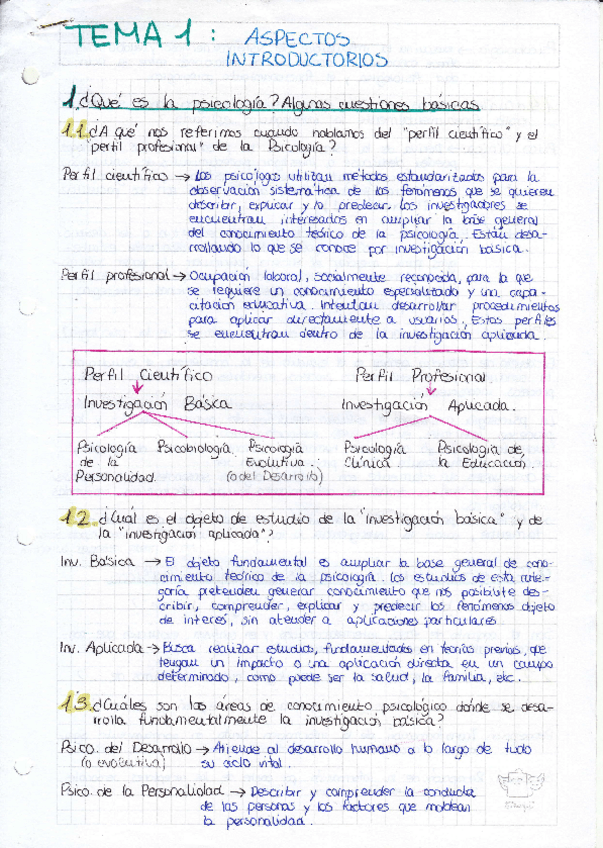 TEMA 1: ASPECTOS
INTRODUCTORIOS
1. ¿Qué es la psicología? Algunas cuestiones básicas
1.1. ¿A qué nos referimos cuando hablamos del "perfil científico" y el
"perfil profesional" de la Psicología?
Perfil científico → Los psicólogos utilizan métodos estandarizados para la
observación sistemática de los fenómenos que se quieren
describir, explicar y/o predecir. Los investigadores se
encuentran interesados en ampliar la base general
del conocimiento teórico de la psicología. Están desa-
rrollando lo que se conoce por investigación básica.
Perfil profesional → Ocupación laboral, socialmente reconocida, para la que
se requiere un conocimiento especializado y una capa-
citación educativa. Intentan desarrollar procedimientos
para aplicar directamente a usuarios. Estos perfiles
se encuentran dentro de la investigación aplicada.
Perfil Científico Perfil Profesional
Investigación Básica Investigación Aplicada.
Psicología Psicobiología Psicología Psicología Psicología de
de la Evolutiva. Clínica. la Educación.
Personalidad. (o del Desarrollo)
1.2. ¿Cuál es el objeto de estudio de la "investigación básica" y de
la "investigación aplicada"?
Inv. Básica → El objeto fundamental es ampliar la base general de cono-
cimiento teórico de la psicología. Los estudios de esta cate-
goría pretenden generar conocimiento que nos posibilite des-
cribir, comprender, explicar y predecir los fenómenos objeto
de interés, sin atender a aplicaciones particulares.
Inv. Aplicada → Busca realizar estudios, fundamentados en teorías previas, que
tengan un impacto o una aplicación directa en un campo
determinado, como puede ser la salud, la familia, etc.
1.3. ¿Cuáles son las áreas de conocimiento psicológico dónde se desa-
rrolla fundamentalmente la investigación básica?
Psico. del Desarrollo → Atiende al desarrollo humano a lo largo de todo
(o evolutiva) su ciclo vital.
Psico. de la Personalidad → Describir y comprender la conducta
de las personas y los factores que moldean
la personalidad.